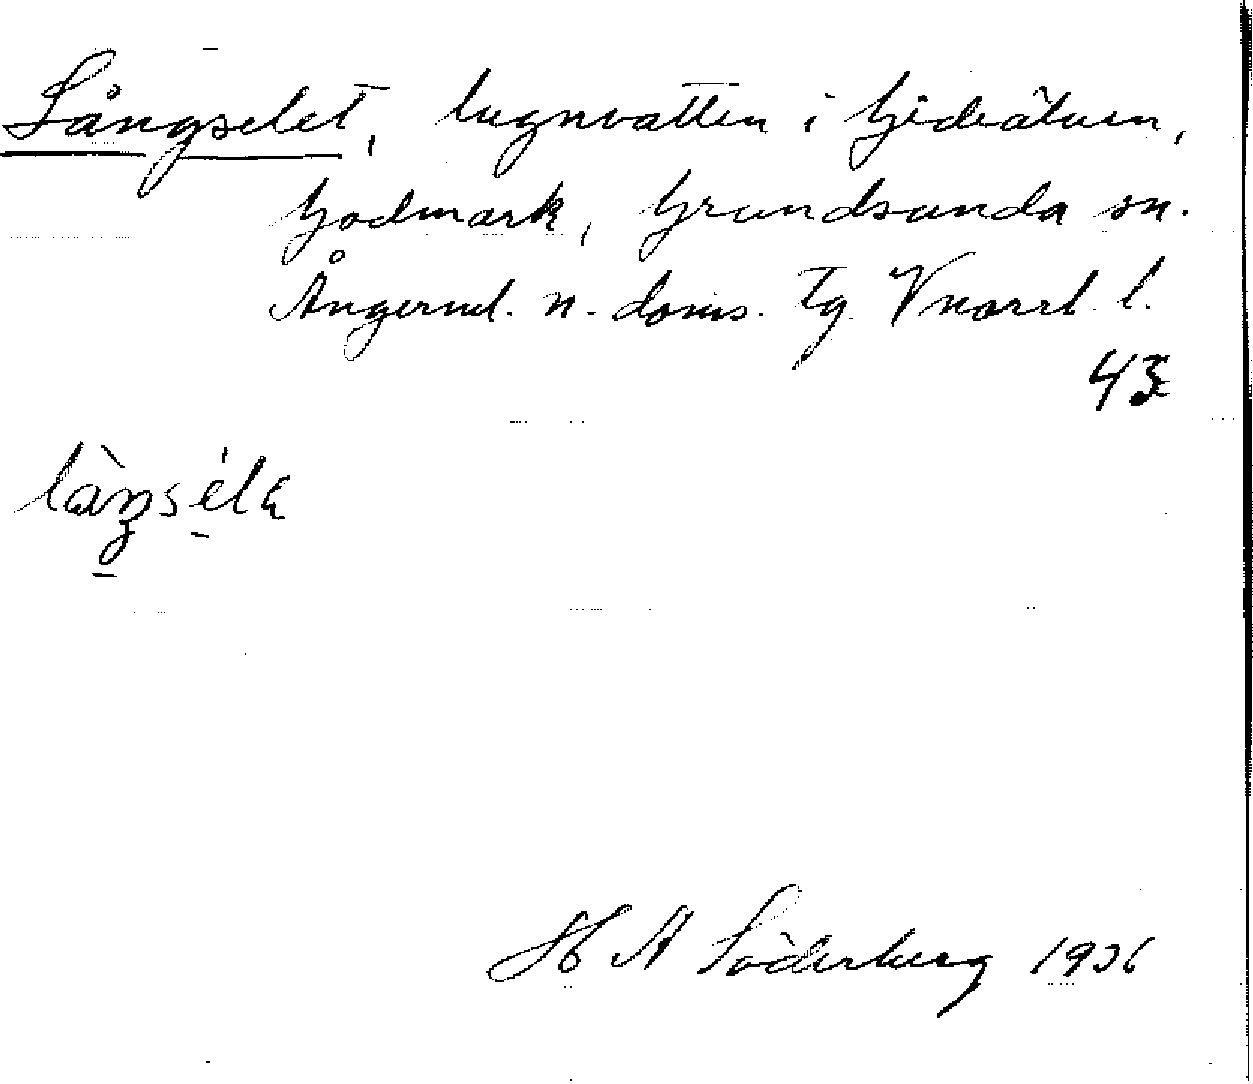 Långselet, lugnvatten i Gideälven,
Godmark, Grundsunda sn.
Ångerml. n. doms. Tg Vnorrl. l.
43
H A Söderberg 1936